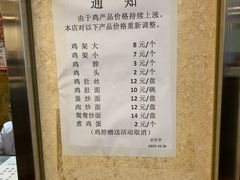 通 知
由于鸡产品价格持续上涨，
本店对以下产品价格重新调整。
鸡 架 大 8 元/个
鸡 架 小 7 元/个
鸡 脖 3 元/个
鸡 头 2 元/个
鸡 肚 丝 12 元/盘
鸡 肚 面 10 元/碗
蛋 炒 面 12 元/盘
肉 炒 面 12 元/盘
鸳鸯炒面 14 元/盘
煮 鸡 蛋 2 元/个
（鸡脖赠送活动取消）
2019.10.26